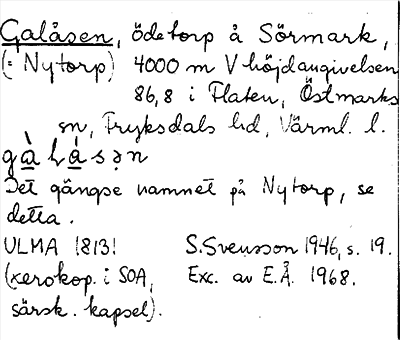 Galåsen, ödetorp å Sörmark,
(= Nytorp) 4000 m V höjdangivelsen
86,8 i Flaten, Östmarks
sn, Fryksdals hd, Värml. l.
gàlásən
Det gängse namnet på Nytorp, se
detta.
ULMA 1813! S. Svensson 1946, s. 19.
(xerokop. i SOA, Exc. av E.Å. 1968.
särsk. kapsel).